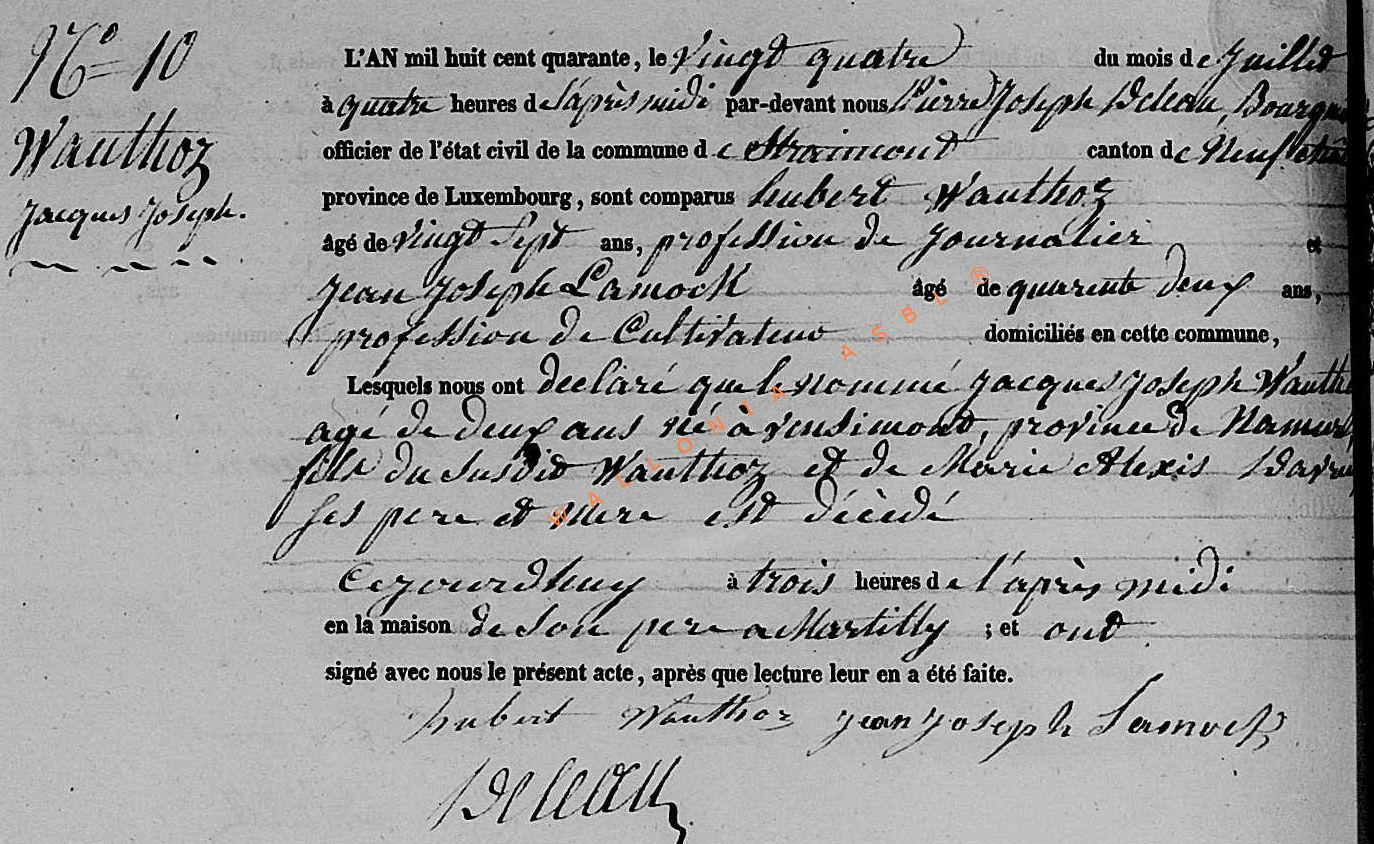 N.o 10
Wauthoz
Jacques Joseph.
L'AN mil huit cent quarante, le Vingt quatre du mois de Juillet
à quatre heures de l'après midi par-devant nous Pierre Joseph Deleau, Bourgm
officier de l'état civil de la commune de Straimont canton de Neufchâ
province de Luxembourg, sont comparus hubert Wauthoz
âgé de vingt Sept ans, profession de Journalier et
Jean Joseph Lamock âgé de quarente deux ans,
profession de Cultivateur domiciliés en cette commune,
Lesquels nous ont declaré que le nommé Jacques Joseph Wauth
agé de deux ans né à vensimont, province de Namur,
fils du Susdit Wauthoz et de Marie Alexis
Ses pere et Mere est décédé
Cejourdhuy à trois heures de l'après midi
en la maison de Son pere a Martilly ; et ont
signé avec nous le présent acte, après que lecture leur en a été faite.
hubert Wauthoz Jean Joseph Lamock
Deleau
WALLONIA ASBL ®